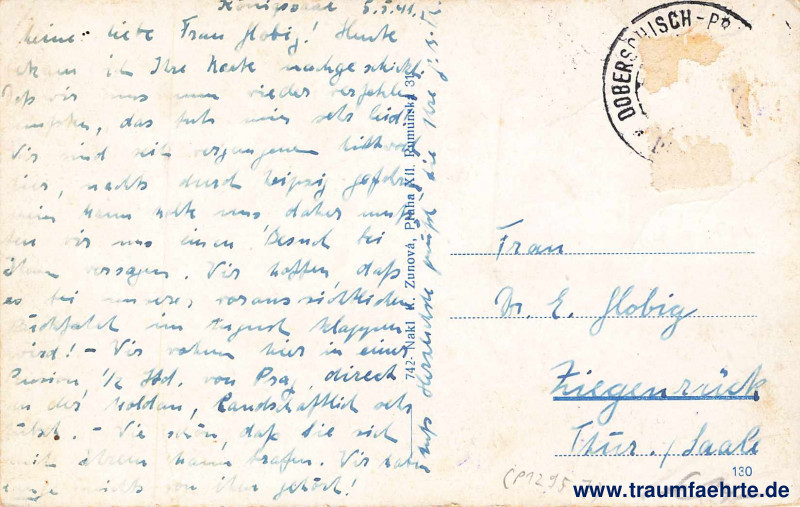 Königssaal 5.5.41.
Meine liebe Frau Globig! Heute
bekam ich Ihre Karte nachgeschickt.
Daß wir uns nun wieder verfehlen
mußten, das tut mir sehr leid.
Wir sind seit vergangenen Mittwoch
hier, nachts durch Leipzig gefahren
mein Mann holte uns daher muß
ten wir uns einen Besuch bei
Ihnen versagen. Wir hoffen, daß
es bei unserer voraussichtlichen
Rückfahrt im August klappen
wird! - Wir wohnen hier in einer
Pension, 1/2 Std. von Prag, direkt
an der Moldau, landschaftlich sehr
hübsch. - Wie schön, daß Sie sich
mit Ihrem Mann trafen. Wir haben
lange nichts von ihm gehört!
Herzlichste
742· Nakl. K. Zunová, Praha XII. Rumunská 31
DOBERSCHISCH-PR
Frau
Dr. E. Globig
Ziegenrück
Thür. / Saale
130
CP1295
www.traumfaehrte.de